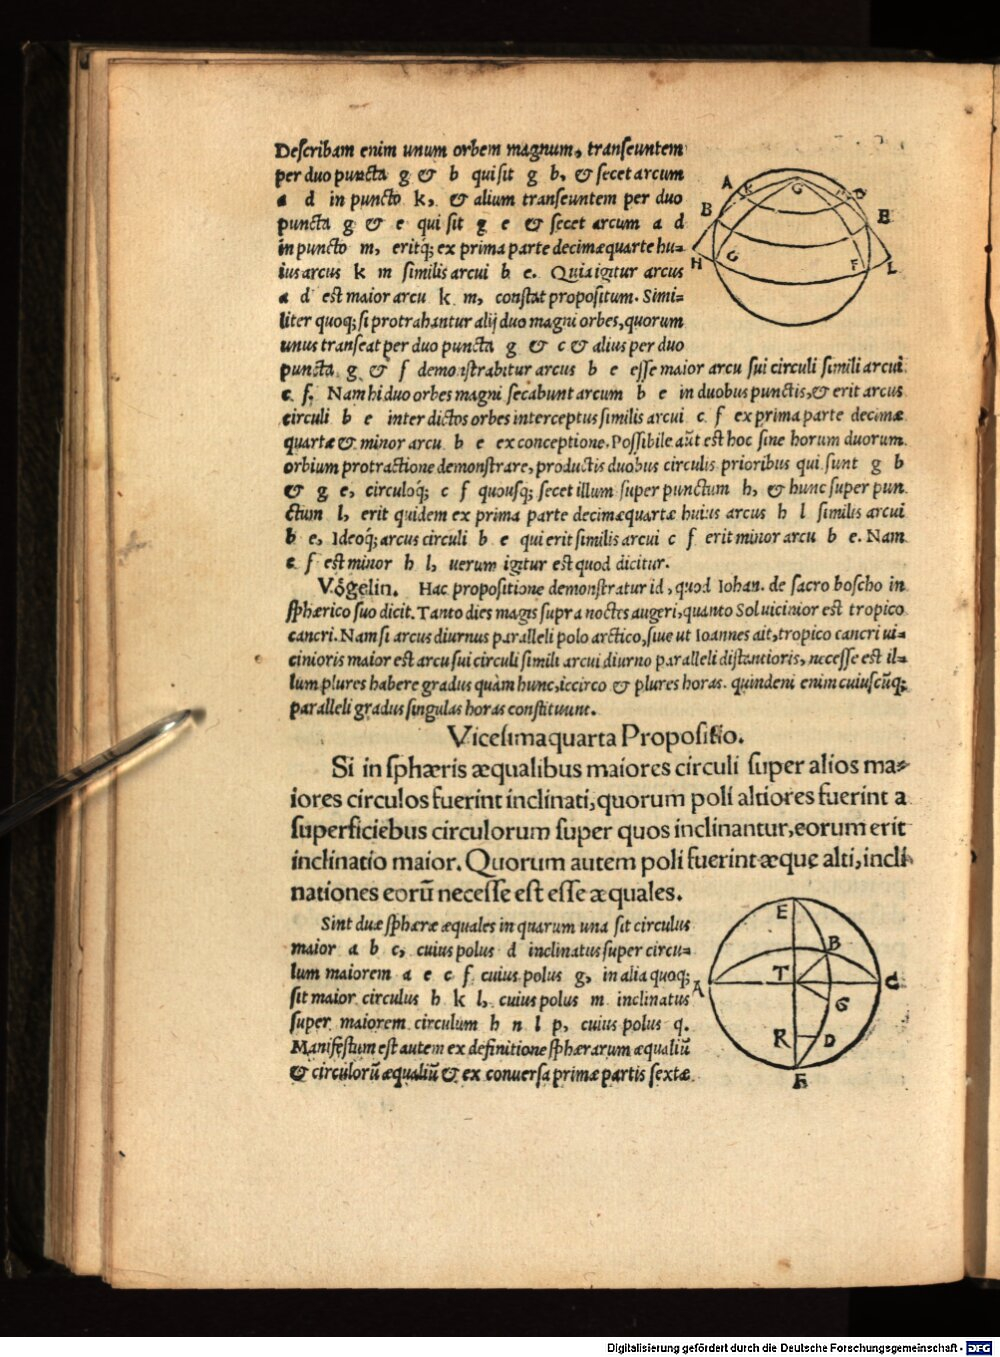 Describam enim unum orbem magnum, transeuntem
per duo puncta g & b qui sit g b, & secet arcum
a d in puncto k, & alium transeuntem per duo
puncta g & e qui sit g e & secet arcum a d
in puncto m, eritq; ex prima parte decimæquarte hu=
ius arcus k m similis arcui b e. Quia igitur arcus
a d est maior arcu k m, constat propositum. Simi=
liter quoq; si protrahantur alij duo magni orbes, quorum
unus transeat per duo puncta g & c & alius per duo
puncta g & f demonstrabitur arcus b e esse maior arcu sui circuli simili arcui
c f. Nam hi duo orbes magni secabunt arcum b e in duobus punctis, & erit arcus
circuli b e inter dictos orbes interceptus similis arcui c f ex prima parte decimæ
quartæ & minor arcu b e ex conceptione. Possibile aũt est hoc sine horum duorum
orbium protractione demonstrare, productis duobus circulis prioribus qui sunt g b
& g e, circuloq́; c f quousq; secet illum super punctum h, & hunc super pun
ctum l, erit quidem ex prima parte decimæquartæ huius arcus h l similis arcui
b e, Ideoq́; arcus circuli b e qui erit similis arcui c f erit minor arcu b e. Nam
c f est minor h l, uerum igitur est quod dicitur.
Vôgelin. Hac propositione demonstratur id, quod Iohan. de sacro boscho in
sphærico suo dicit. Tanto dies magis supra noctes augeri, quanto Sol uicinior est tropico
cancri. Nam si arcus diurnus paralleli polo arctico, siue ut Ioannes ait, tropico cancri ui=
cinioris maior est arcu sui circuli simili arcui diurno paralleli distantioris, necesse est il=
lum plures habere gradus quàm hunc, iccirco & plures horas. quindeni enim cuiuscũq;
paralleli gradus singulas horas constituunt.
Vicesimaquarta Propositio.
Si in sphæris æqualibus maiores circuli super alios ma=
iores circulos fuerint inclinati, quorum poli altiores fuerint a
superficiebus circulorum super quos inclinantur, eorum erit
inclinatio maior. Quorum autem poli fuerint æque alti, incli
nationes eorũ necesse est esse æquales.
Sint duæ sphæræ æquales in quarum una sit circulus
maior a b c, cuius polus d inclinatus super circu=
lum maiorem a e c f cuius polus g, in alia quoq;
sit maior circulus h k l, cuius polus m inclinatus
super maiorem circulum h n l p, cuius polus q.
Manifestum est autem ex definitione sphærarum æqualiũ
& circulorũ æqualiũ & ex conuersa primæ partis sextæ
A K G D
B E
H C F L
E
B
A T C
G
R D
F
Digitalisierung gefördert durch die Deutsche Forschungsgemeinschaft - DFG